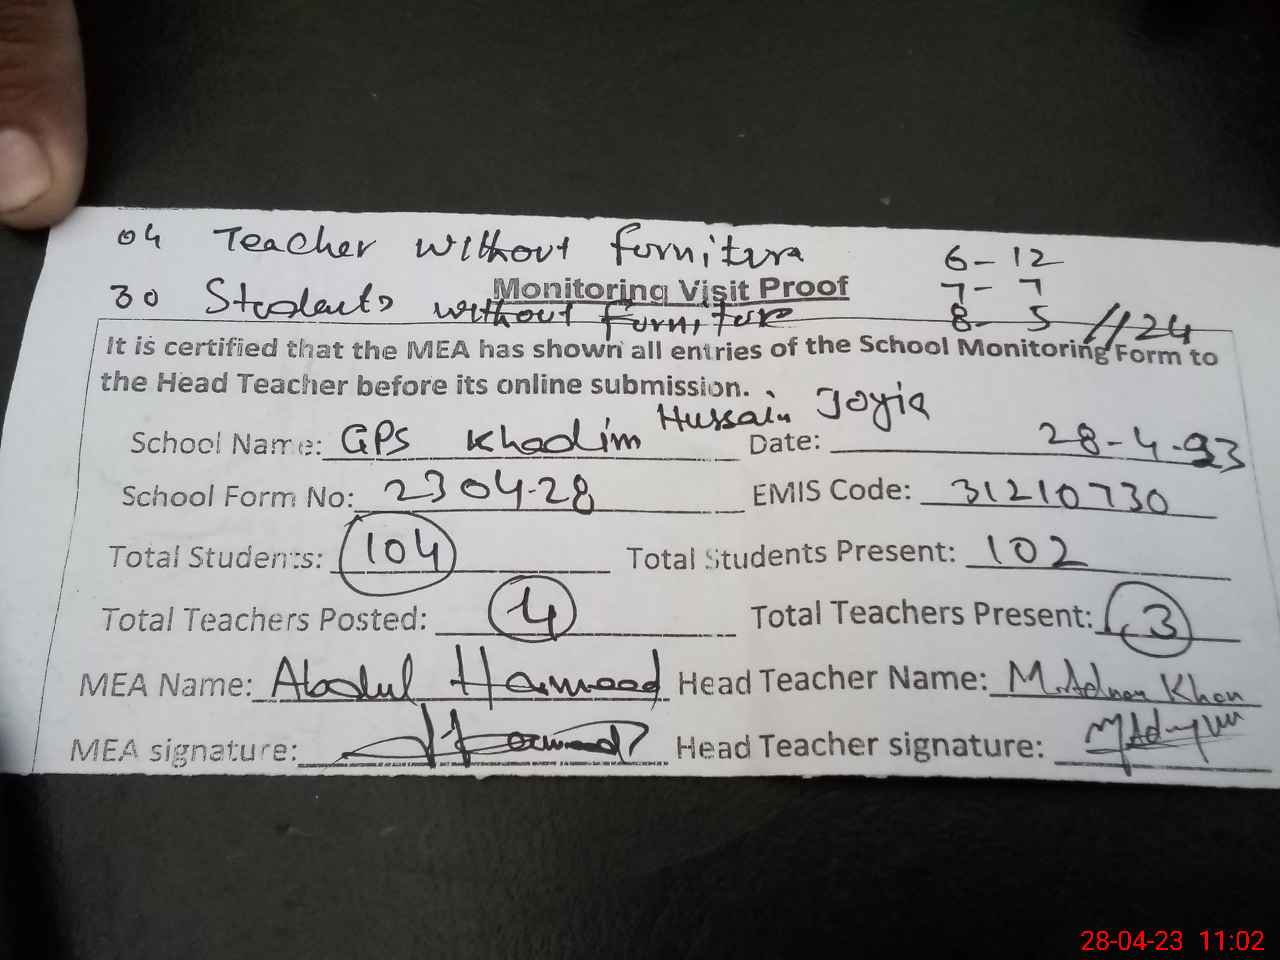 04 Teacher without furniture
6-12
30 Students without furniture
7-7
8-5 //24
Monitoring Visit Proof
It is certified that the MEA has shown all entries of the School Monitoring Form to
the Head Teacher before its online submission.
School Name: GPS Khadim Hussain Joyia Date: 28-4-23
School Form No: 2304-28 EMIS Code: 31210730
Total Students: 104 Total Students Present: 102
Total Teachers Posted: 4 Total Teachers Present: 3
MEA Name: Abdul Hameed Head Teacher Name: M. Adnan Khan
MEA signature: Head Teacher signature:
28-04-23 11:02